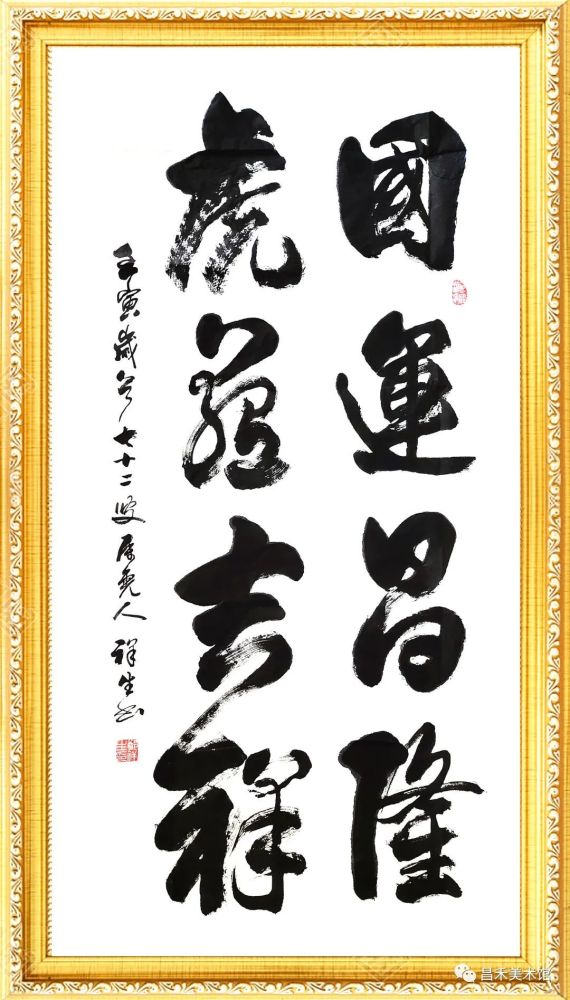 國運昌隆
虎藴吉祥
壬寅歲七十二叟人祥生书
昌禾美术馆